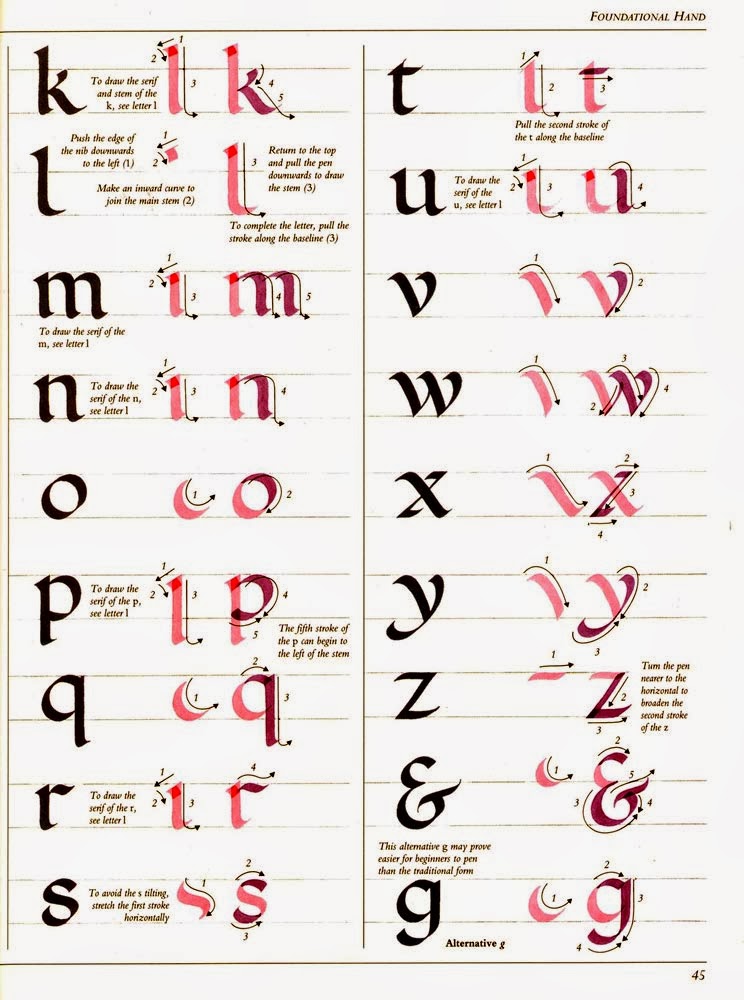 FOUNDATIONAL HAND
k
To draw the serif
and stem of the
k, see letter l
1
2
3
4
5
l
Push the edge of
the nib downwards
to the left (1)
Make an inward curve to
join the main stem (2)
1
2
3
Return to the top
and pull the pen
downwards to draw
the stem (3)
To complete the letter, pull the
stroke along the baseline (3)
m
1
2
3
4
5
To draw the serif of the
m, see letter l
n
To draw the
serif of the n,
see letter l
1
2
3
4
o
1
2
p
To draw the
serif of the p,
see letter l
1
2
3
4
5
The fifth stroke of
the p can begin to
the left of the stem
q
1
2
3
r
To draw the
serif of the r,
see letter l
1
2
3
4
s
To avoid the s tilting,
stretch the first stroke
horizontally
1
2
3
t
1
2
3
Pull the second stroke of
the t along the baseline
u
To draw the
serif of the
u, see letter l
1
2
3
4
v
1
2
w
1
2
3
4
x
1
2
3
4
y
1
2
3
z
1
2
3
Turn the pen
nearer to the
horizontal to
broaden the
second stroke
of the z
&
1
2
3
4
5
This alternative g may prove
easier for beginners to pen
than the traditional form
g
Alternative g
1
2
3
4
45